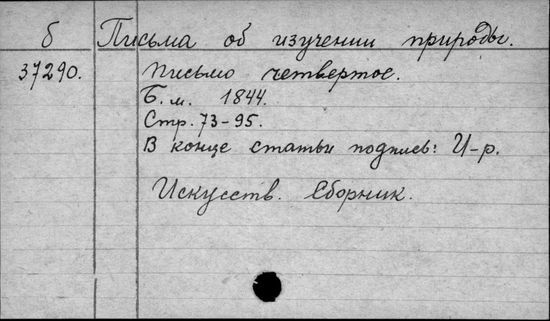 б Письма об изучении природы.
37290. Письмо четвертое.
Б.м. 1844.
Стр. 73-95.
В конце статьи подпись: И-р.
Искусств. Сборник.